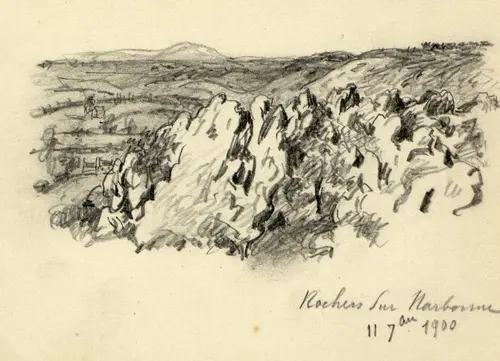 Rochers sur Narbonne
11 7bre 1900